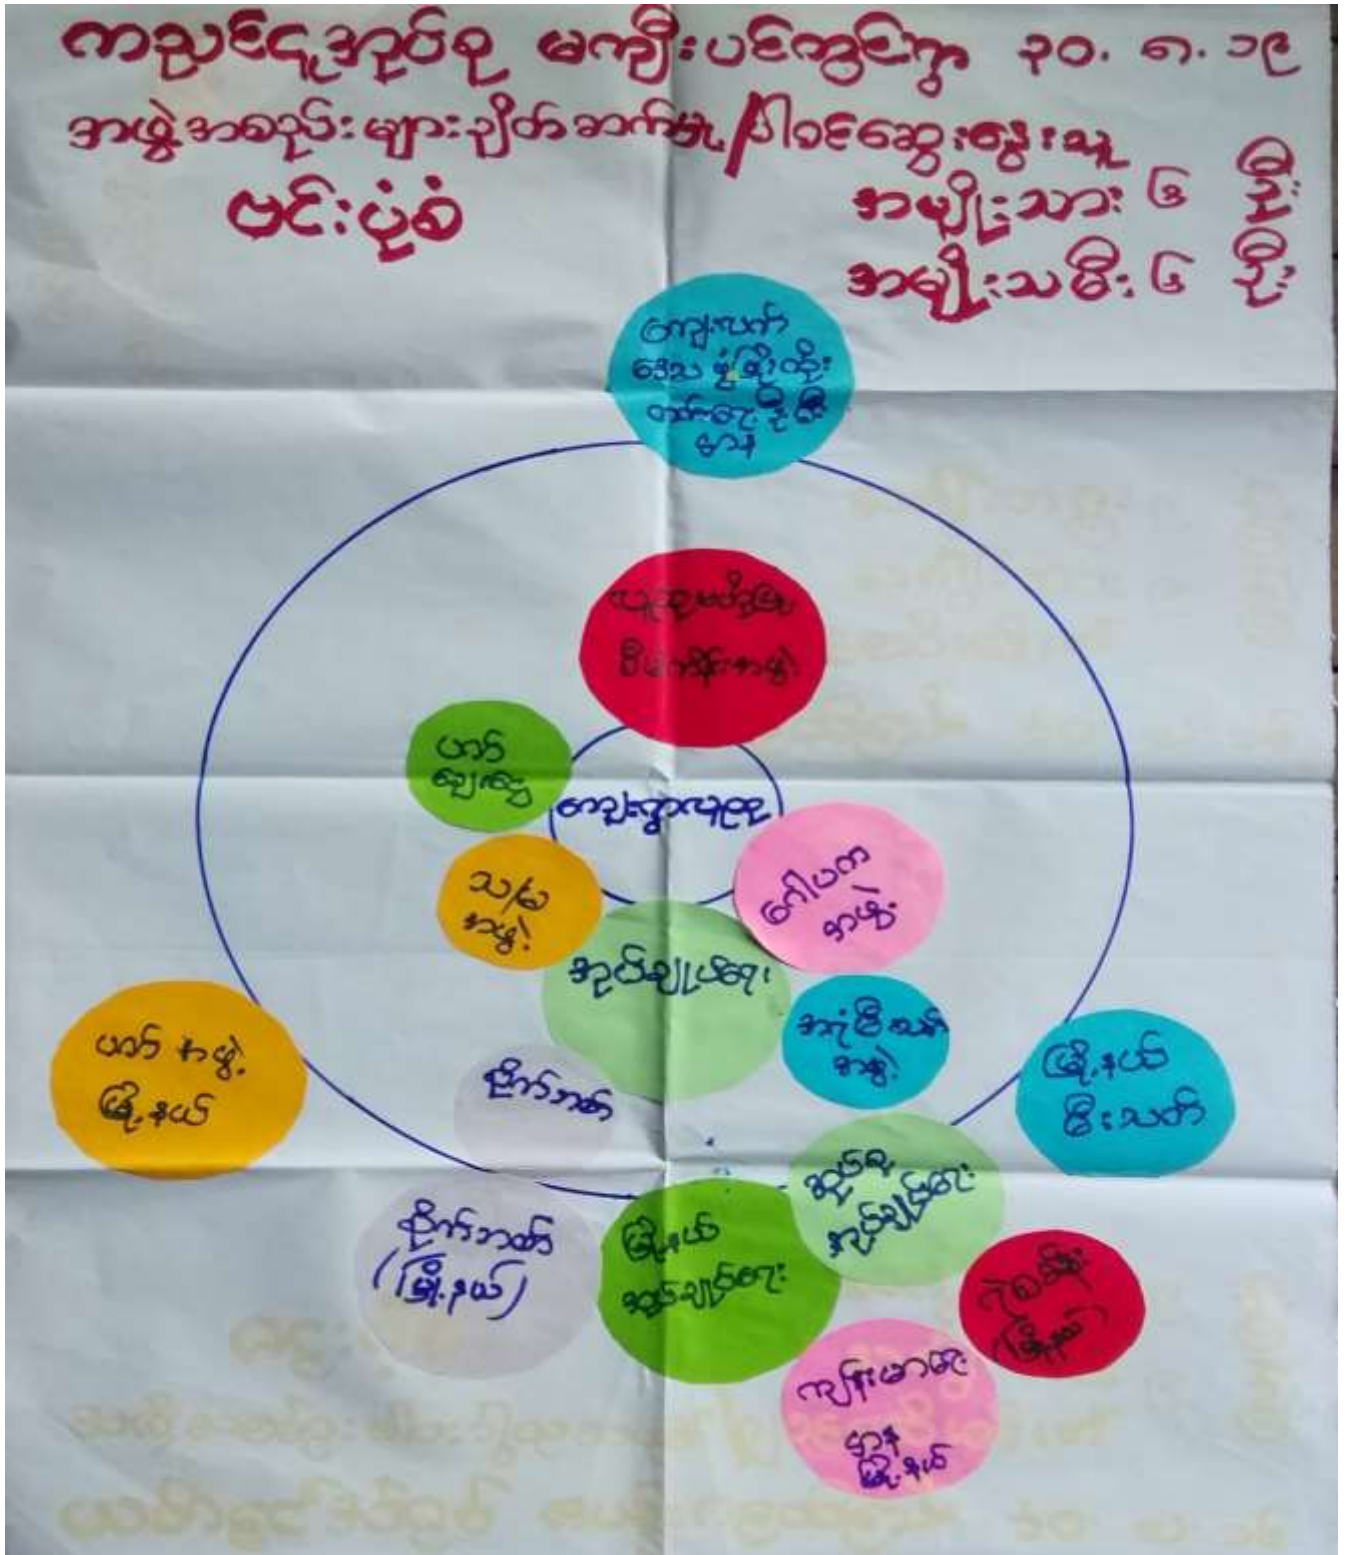 ကညင်ငူအုပ်စု မကျီးပင်ကွင်ရွာ ၃၀. ၈. ၁၉
အဖွဲ့အစည်းများချိတ်ဆက်မှု/ပါဝင်ဆွေးနွေးသူ
ဗင်းပုံစံ
အမျိုးသား ၆ ဦး
အမျိုးသမီး ၆ ဦး
ကျေးလက်
ဒေသ ဖွံ့ဖြိုးတိုး
တက်ရေး ဦးစီး
ဌာန
လူထုဗဟိုပြု
စီမံကိန်းအဖွဲ့
ဟတ်
ချေးငွေ
ကျေးရွာလူထု
သ/မ
အဖွဲ့
ဂေါပက
အဖွဲ့
အုပ်ချုပ်ရေး
အရံမီးသတ်
အဖွဲ့
စိုက်ဘဏ်
အဖွဲ့
မြို့နယ်
မြို့နယ်
မီးသတ်
အုပ်စု
အုပ်ချုပ်ရေး
စိုက်ဘဏ်
(မြို့နယ်)
မြို့နယ်
အုပ်ချုပ်ရေး
ရဲစခန်း
(မြို့နယ်)
ကျန်းမာရေး
ဌာန
မြို့နယ်